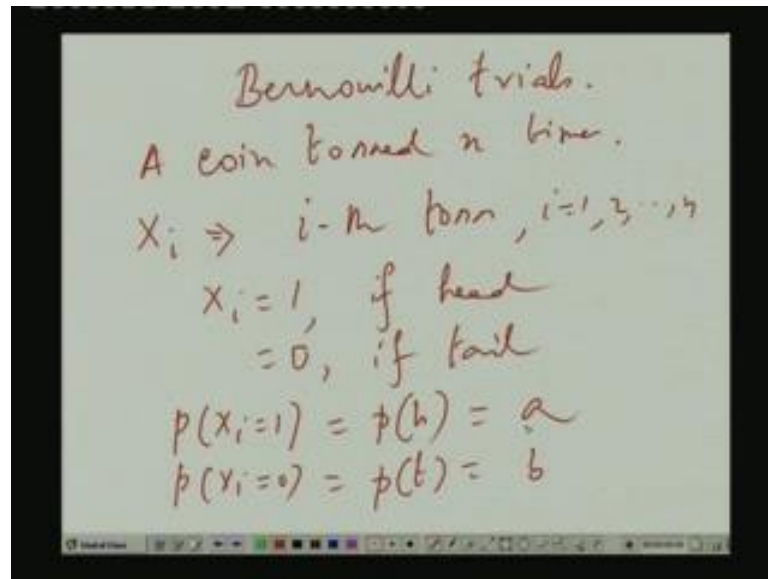 Bernouilli trials.
A coin tossed n times.
Xi ⇒ i-th toss, i=1, 2, ..., n
Xi = 1, if head
= 0, if tail
p(Xi=1) = p(h) = a
p(Xi=0) = p(t) = b